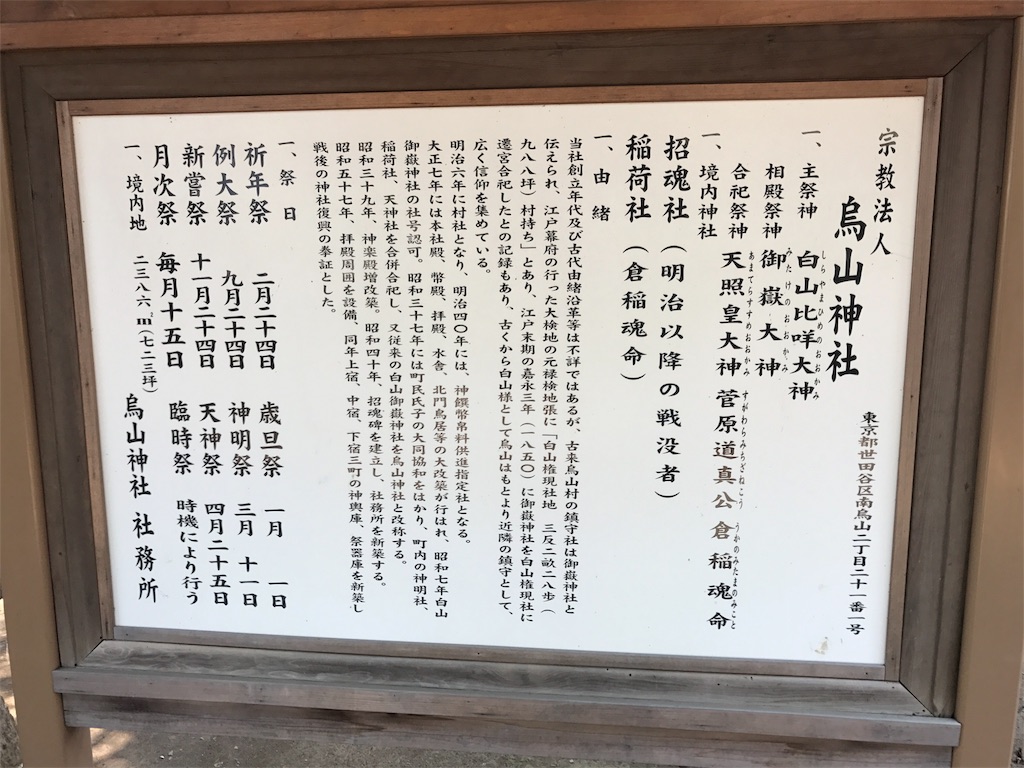 宗教法人
烏山神社
東京都世田谷区南烏山二丁目二十一番一号
一、主祭神 白山比咩大神
しらやまひめのおおかみ
相殿祭神 御嶽大神
みたけのおおかみ
合祀祭神 天照皇大神 菅原道真公 倉稲魂命
あまてらすすめおおかみ すがわらみちざねこう うかのみたまのみこと
一、境内神社
招魂社（明治以降の戦没者）
稲荷社（倉稲魂命）
一、由緒
当社創立年代及び古代由緒沿革等は不詳ではあるが、古来烏山村の鎮守社は御嶽神社と
伝えられ、江戸幕府の行った大検地の元禄検地張に「白山権現社地 三反二畝二八歩（
九八八坪）村持ち」とあり、江戸末期の嘉永三年（一八五〇）に御嶽神社を白山権現社に
遷宮合祀したとの記録もあり、古くから白山様として烏山はもとより近隣の鎮守として、
広く信仰を集めている。
明治六年に村社となり、明治四〇年には、神饌幣帛料供進指定社となる。
大正七年には本社殿、幣殿、拝殿、水舎、北門鳥居等の大改築が行はれ、昭和七年白山
御嶽神社の社号認可。昭和三十七年には町民氏子の大同協和をはかり、町内の神明社、
稲荷社、天神社を合併合祀し、又従来の白山御嶽神社を烏山神社と改称する。
昭和三十九年、神楽殿増改築。昭和四十年、招魂碑を建立し、社務所を新築する。
昭和五十七年、拝殿周囲を設備、同年上宿、中宿、下宿三町の神輿庫、祭器庫を新築し
戦後の神社復興の奉証とした。
一、祭日
祈年祭 二月二十四日 歳旦祭 一月一日
例大祭 九月二十四日 神明祭 三月十一日
新嘗祭 十一月二十四日 天神祭 四月二十五日
月次祭 毎月十五日 臨時祭 時機により行う
一、境内地 二三八六、㎡（七二三坪）
烏山神社 社務所